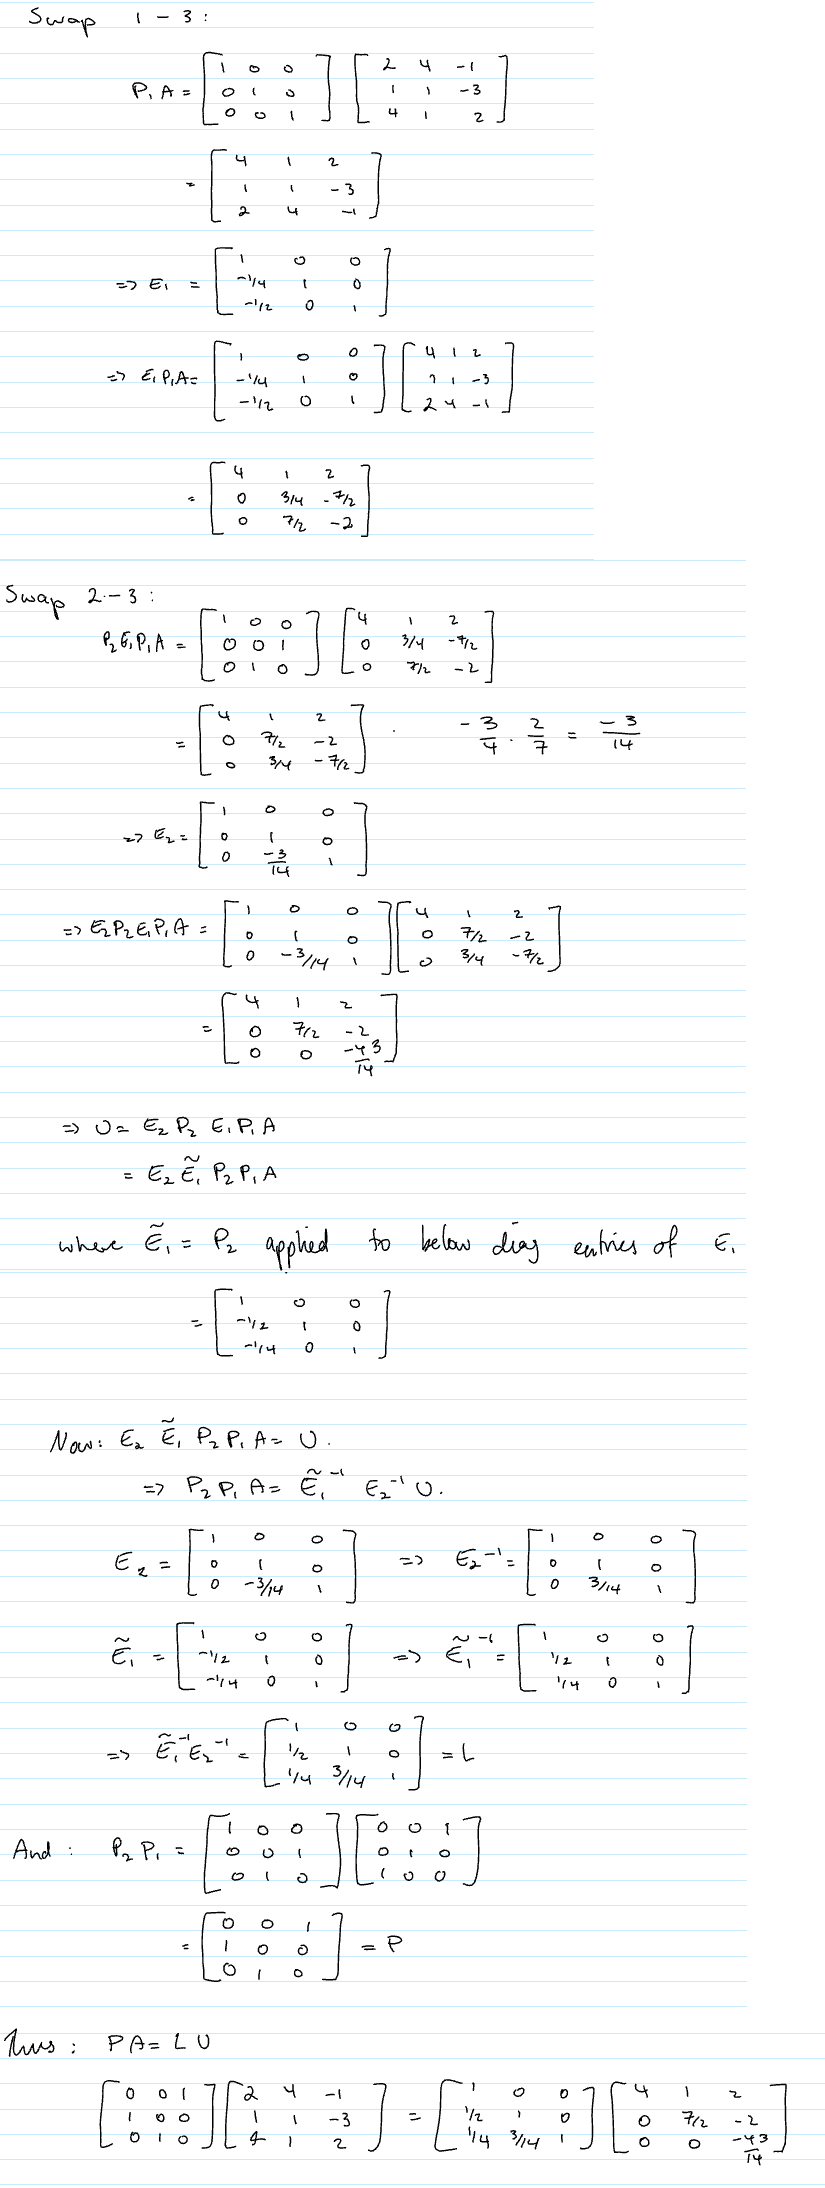 Swap 1 - 3 :
P₁A = [1 0 0; 0 1 0; 0 0 1] [2 4 -1; 1 1 -3; 4 1 2]
= [4 1 2; 1 1 -3; 2 4 -1]
=> E₁ = [1 0 0; -1/4 1 0; -1/2 0 1]
=> E₁P₁A = [1 0 0; -1/4 1 0; -1/2 0 1] [4 1 2; 1 1 -3; 2 4 -1]
= [4 1 2; 0 3/4 -7/2; 0 7/2 -2]
Swap 2 - 3 :
P₂E₁P₁A = [1 0 0; 0 0 1; 0 1 0] [4 1 2; 0 3/4 -7/2; 0 7/2 -2]
= [4 1 2; 0 7/2 -2; 0 3/4 -7/2] . -3/4 . 2/7 = -3/14
=> E₂ = [1 0 0; 0 1 0; 0 -3/14 1]
=> E₂P₂E₁P₁A = [1 0 0; 0 1 0; 0 -3/14 1] [4 1 2; 0 7/2 -2; 0 3/4 -7/2]
= [4 1 2; 0 7/2 -2; 0 0 -43/14]
=> U = E₂ P₂ E₁ P₁ A
= E₂ Ẽ₁ P₂ P₁ A
where Ẽ₁ = P₂ applied to below diag entries of E₁
= [1 0 0; -1/2 1 0; -1/4 0 1]
Now: E₂ Ẽ₁ P₂ P₁ A = U.
=> P₂ P₁ A = Ẽ₁⁻¹ E₂⁻¹ U.
E₂ = [1 0 0; 0 1 0; 0 -3/14 1] => E₂⁻¹ = [1 0 0; 0 1 0; 0 3/14 1]
Ẽ₁ = [1 0 0; -1/2 1 0; -1/4 0 1] => Ẽ₁⁻¹ = [1 0 0; 1/2 1 0; 1/4 0 1]
=> Ẽ₁⁻¹E₂⁻¹ = [1 0 0; 1/2 1 0; 1/4 3/14 1] = L
And : P₂ P₁ = [1 0 0; 0 0 1; 0 1 0] [0 0 1; 0 1 0; 1 0 0]
= [0 0 1; 1 0 0; 0 1 0] = P
Thus : PA = LU
[0 0 1; 1 0 0; 0 1 0] [2 4 -1; 1 1 -3; 4 1 2] = [1 0 0; 1/2 1 0; 1/4 3/14 1] [4 1 2; 0 7/2 -2; 0 0 -43/14]